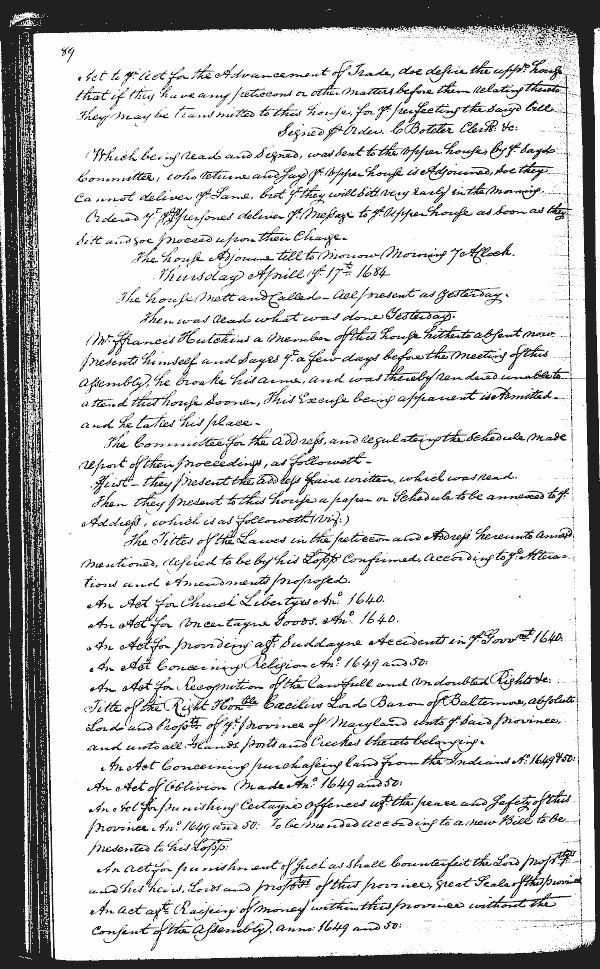 89
Act to ye Act for the Advancement of Trade, doe desire the upp.r house
that if they have any peticcons or other matters before them relating thereto
They may be transmitted to this house, for ye perfecting the said bill
Signed p Order C Boteler Clerk &c.
Which being read and Signed, was sent to the Upper house, by ye Sayd
Committee, who returne and say ye Upper house is Adjourned, soe they
Cannot deliver ye Same, but yt they will Sitt very early in the Morning
Ordered yt ye persones deliver ye Message to ye Upper house as Soon as they
Sitt and soe proceed upon their Charge.
The house Adjourne till to Morrow Morning 7 aClock.
Thursday Aprill ye 17th 1684
The house Mett and Called - All present as yesterday.
Then was read what was done Yesterday.
Mr. Ffrancis Hutchins a Member of this house hitherto absent now
presents himself and Sayes yt a few days before the Meeting of this
Assembly, he broake his arme, and was thereby rendered unable to
attend this house Sooner, This Excuse being apparent is Admitted.
and he takes his place.
The Committee for the Address, and regulateing the Schedule made
report of their proceedings, as followeth.
Ffirst - they present the address faire written, which was read.
Then they present to this house a paper or Schedule to be annexed to ye
Address, which is as followeth (viz:)
The Titles of the Lawes in the peticcon and Address hereunto annexed
mentioned, desired to be by his Lopp Confirmed, according to ye Altera-
tions and Amendments proposed.
An Act for Church Libertyes Ano. 1640.
An Act for Uncertayne Goods. Ano. 1640.
An Act for providing agt. Suddayne Accidents in ye Governt. 1640.
An Act Conceining Religion Ano. 1649 and 50:
An Act for Recognition of the Lawfull and Undoubted Right &c.
Title of the Right Honble Cecilius Lord Baron of Baltemore, absolute
Lord and Proptr of ye province of Maryland unto ye Said province,
and unto all Islands ports and Creekes thereto belonging.
An Act Concerning purchaseing land from the Indians Ao. 1649 & 50:
An Act of Oblivion Made Ano. 1649 and 50:
An Act for punishing Certayne Offences agt. the peace and Safety of this
province Ano. 1649 and 50: To be mended according to a new Bill to be
presented to his Lopp:
An Act for punishment of Such as shall Counterfeit the Lord
and his heirs, Lords and of this province, great Seale of this province
An Act agt. Raiseing of Money within this province without the
Consent of the Assembly. anno 1649 and 50: